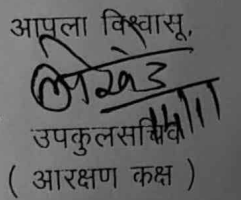 आपला विश्वासू,
उपकुलसचिव
( आरक्षण कक्ष )